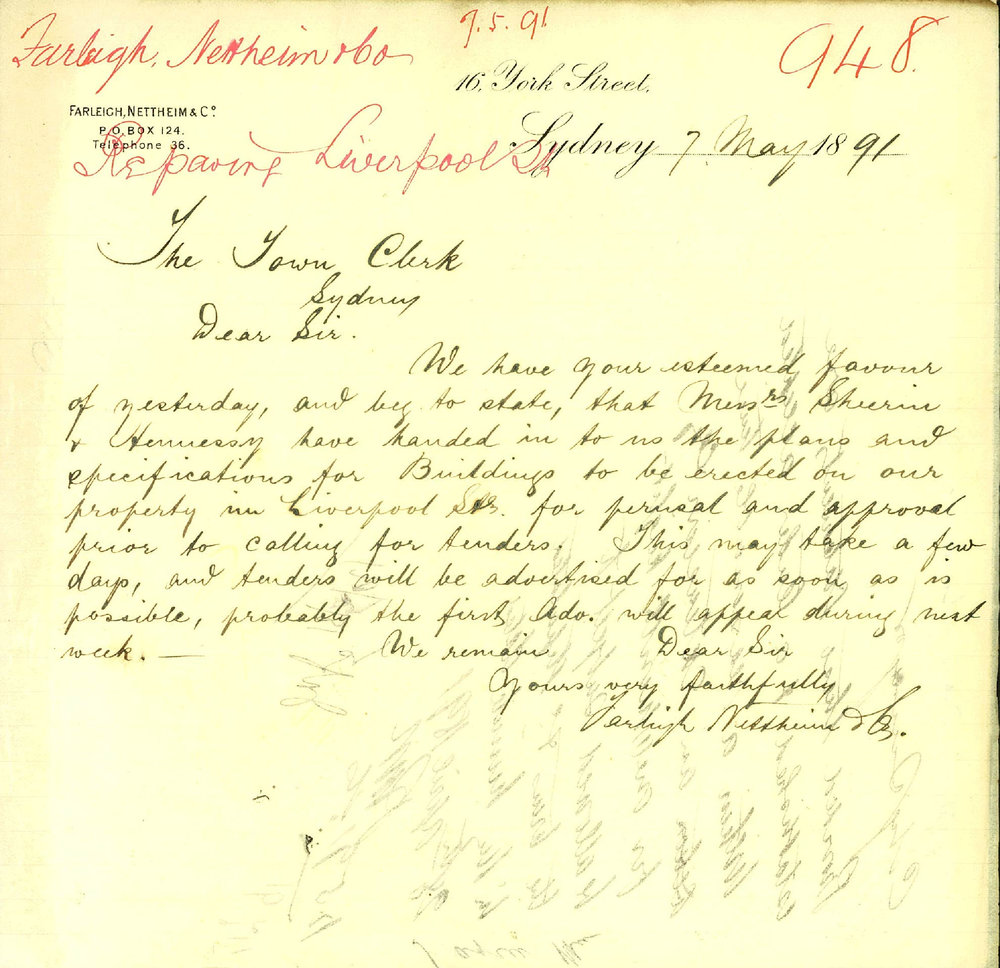 7.5.91
Farleigh, Nettheim & Co
948.
16, York Street,
FARLEIGH, NETTHEIM & Co.
P.O. BOX 124.
Telephone 36.
Sydney 7 May 1891
Re paving Liverpool St
The Town Clerk
Sydney
Dear Sir.
We have your esteemed favour
of yesterday, and beg to state, that Messrs Sheerin
& Hennessy have handed in to us the plans and
specifications for Buildings to be erected on our
property in Liverpool Str. for perusal and approval
prior to calling for tenders. This may take a few
days, and tenders will be advertised for as soon as is
possible, probably the first Adv. will appear during next
week. —
We remain Dear Sir
Yours very faithfully
Farleigh Nettheim & Co.